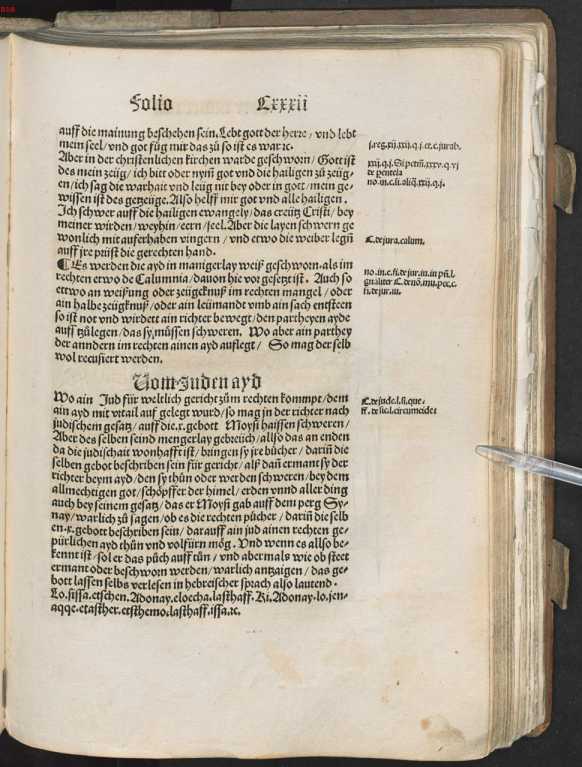 Folio Lxxxii
auff die mainung beschehen sein. Lebt gott der herre / vnd lebt
mein seel / vnd got füg mir das zů so ist es war ꝛc.
Aber in der christenlichen kirchen warde geschworn / Gott ist
des mein zeüg / ich bitt oder nym̃ got vnd die hailigen zů zeüg-
en / ich sag die warhait vnd leüg nit bey oder in gott / mein ge-
wissen ist des gezeüge. Also helff mir got vnd alle hailigen.
Ich schwer auff die hailigen ewangely / das creütz Cristi / bey
meiner wirden / weyhin / eern / seel. Aber die layen schwern ge
wonlich mit auferhaben vingern / vnd etwo die weiber legñ
auff jre prüst die gerechten hand.
¶ Es werden die ayd in manigerlay weiß geschworn. als im
rechten etwo de Calumnia / dauon hie vor gesetzt ist. Auch so
ettwo an weißung oder zeügknuß im rechten mangel / oder
ain halbe zeügknuß / oder ain leümandt vmb ain sach entsteen
so ist not vnd wirdett ain richter bewegt / den partheyen ayde
auff zůlegen / das sy müssen schweren. Wo aber ain parthey
der anndern im rechten ainen ayd auflegt / So mag der selb
wol recusiert werden.
Vom Juden ayd
Wo ain Jud für weltlich gericht zům rechten kommpt / dem
ain ayd mit vrtail auf gelegt wurd / so mag in der richter nach
judischem gesatz / auff die .x. gebott Moysi haissen schweren /
Aber des selben seind mengerlay gebreüch / allso das an enden
da die judischait wonhafft ist / bringen sy jre bücher / darin̄ die
selben gebot beschriben sein für gericht / alß dañ ermant sy der
richter beym ayd / den sy thůn oder werden schweren / bey dem
allmechtigen got / schöpffer der himel / erden vnnd aller ding
auch bey seinem gesatz / das er Moysi gab auff dem perg Sy-
nay / warlich zů sagen / ob es die rechten pücher / darin̄ die selb
en .x. gebott beschriben sein / darauff ain jud ainen rechten ge-
pürlichen ayd thůn vnd volfürn mög. Vnd wenn es allso be-
kennt ist / sol er das půch auff tůn / vnd abermals wie ob steet
ermant oder beschworn werden / warlich antzaigen / das ge-
bott lassen selbs verlesen in hebreischer sprach also lautend.
Lo. sissa. etschen. Adonay. eloecha. lasthaff. Ki. Adonay. lo. jen-
aqqe. etasther. etsthemo. lasthaff. issa. ꝛc.
C. de jura. calum.